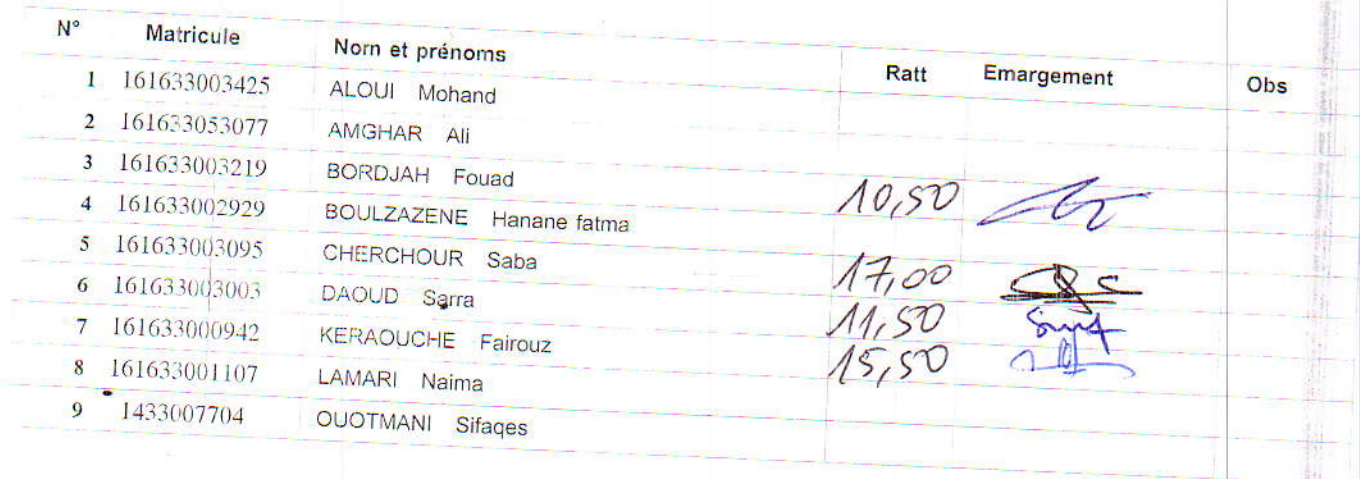 N° Matricule Nom et prénoms Ratt Emargement Obs
1 161633003425 ALOUI Mohand
2 161633053077 AMGHAR Ali
3 161633003219 BORDJAH Fouad 10,50
4 161633002929 BOULZAZENE Hanane fatma
5 161633003095 CHERCHOUR Saba 17,00
6 161633003003 DAOUD Sarra 11,50
7 161633000942 KERAOUCHE Fairouz 15,50
8 161633001107 LAMARI Naima
9 1433007704 OUOTMANI Sifaqes